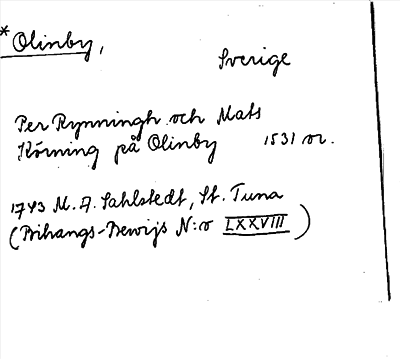 * Olinby,
Sverige
Per Rynningh och Mats
Körning på Olinby 1531 or.
1743 M. A. Sahlstedt, St. Tuna
(Bihangs-Bewijs N:o LXXVIII)